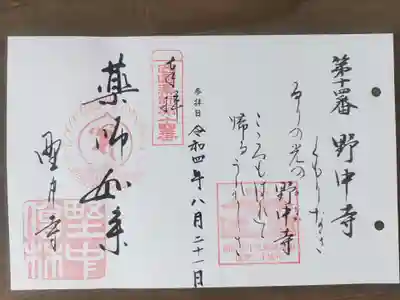 第十四番 野中寺
くもりなき
るりの光の 野中寺
こころもはれて
帰るうれしさ
参拝日 令和四年八月二十一日
奉拝
薬師如来
野中寺